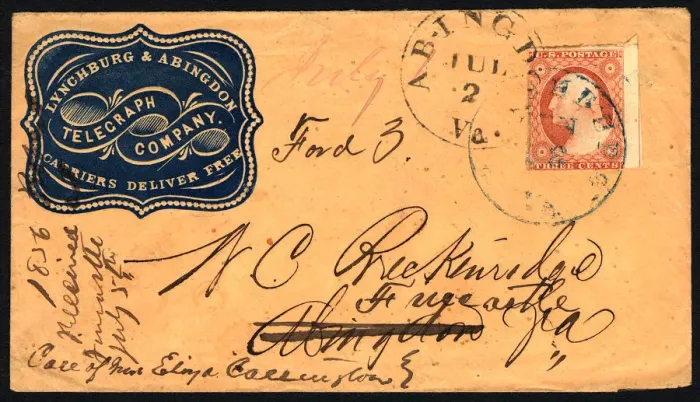 LYNCHBURG & ABINGDON
TELEGRAPH
COMPANY.
CARRIERS DELIVER FREE
ABINGD
JUL
2
Va.
U.S. POSTAGE
THREE CENTS
Ford 3.
W C Breckenridge
Fincastle
Abingdon Va
1856
Received
Fincastle
July 5th
Care of Mrs Eliza Carrington